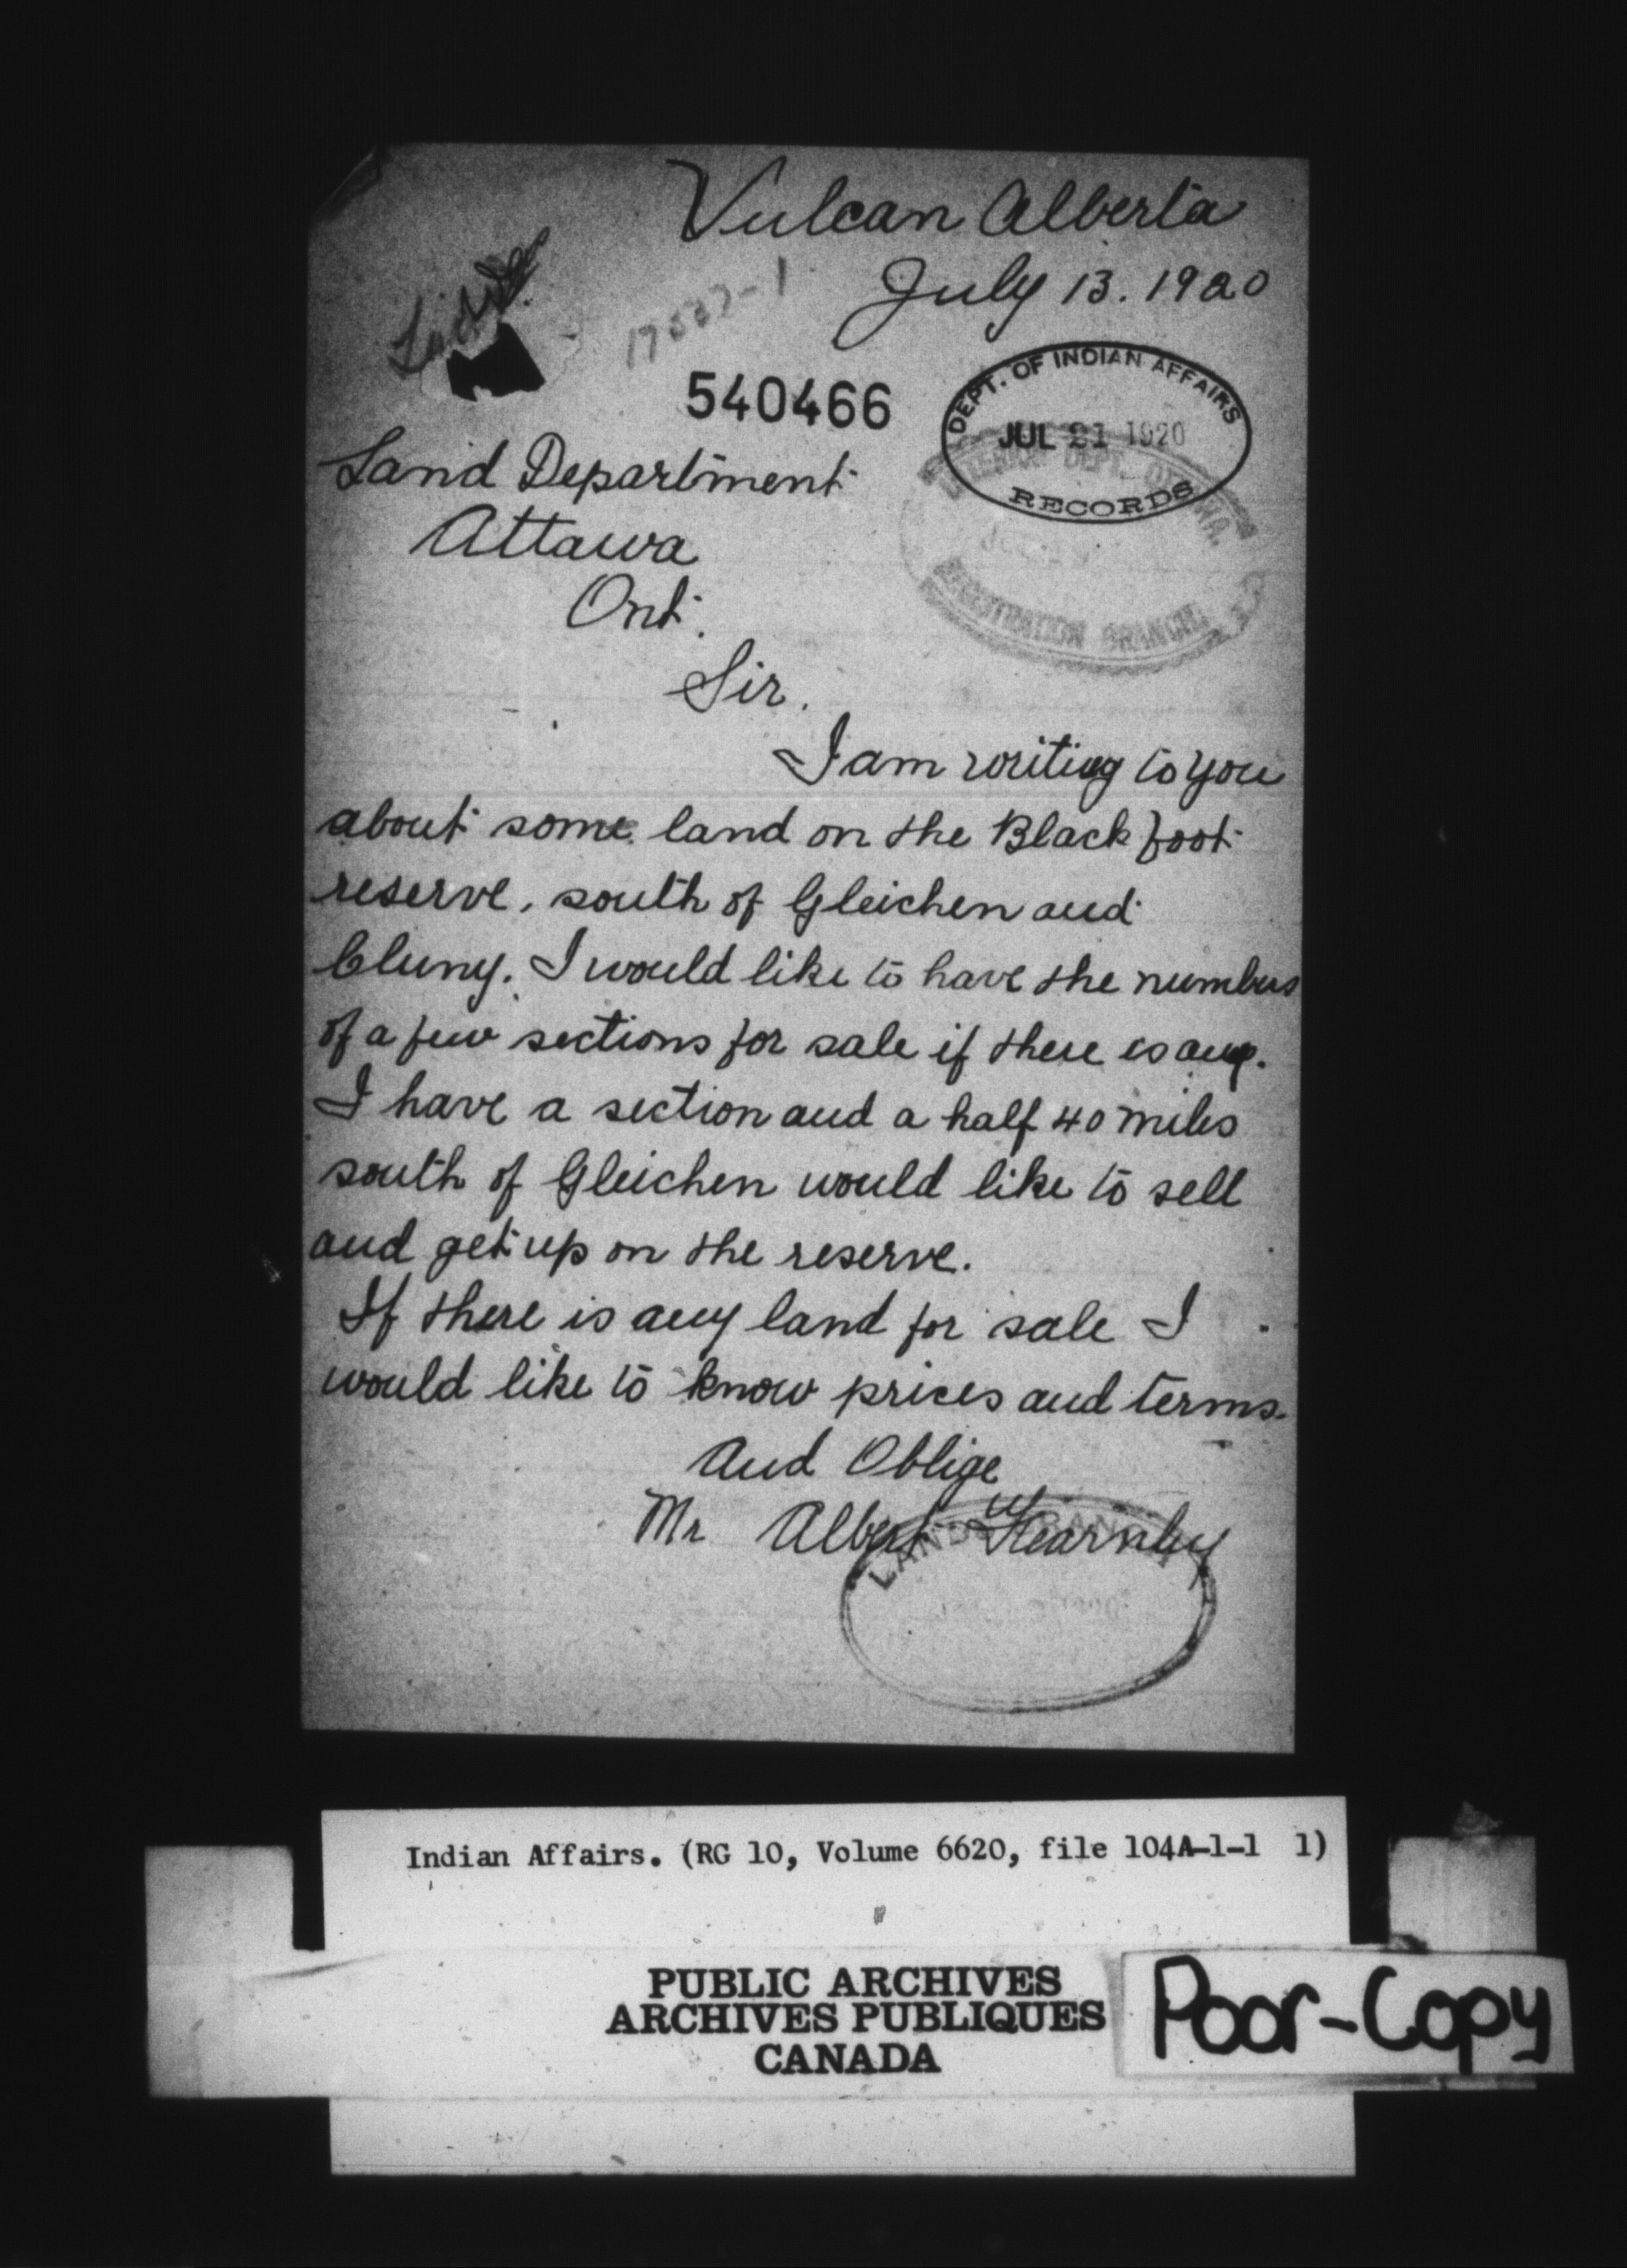 Vulcan Alberta
July 13. 1920
540466
DEPT. OF INDIAN AFFAIRS
JUL 21 1920
RECORDS
Land Department
Attawa
Ont.
REGISTRATION BRANCH
Sir.
I am writing to you
about some land on the Black foot
reserve, south of Gleichen and
Cluny. I would like to have the numbers
of a few sections for sale if there is any.
I have a section and a half 40 miles
south of Gleichen would like to sell
and get up on the reserve.
If there is any land for sale I
would like to know prices and terms.
And Oblige
Mr Albert Fearnley
LANDS BRANCH
Indian Affairs. (RG 10, Volume 6620, file 104A-1-1 1)
PUBLIC ARCHIVES
ARCHIVES PUBLIQUES
CANADA
Poor-Copy